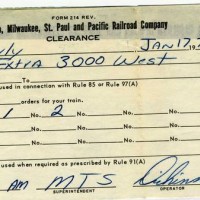 FORM 214 REV.
o, Milwaukee, St. Paul and Pacific Railroad Company
CLEARANCE
JAN 17, 
Extra 3000 West
To
used in connection with Rule 85 or Rule 97(A)
orders for your train.
1 No. 2 No. No. No.
No. No. No. No.
No. No. No. No.
used when required as prescribed by Rule 91(A)
AM MTS
SUPERINTENDENT OPERATOR